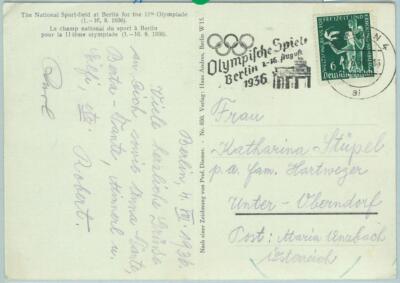 The National Sport-field at Berlin for the 11th Olympiade
(1.-16. 8. 1936).
Le champ national du sport à Berlin
pour la 11ième olympiade (1.-16. 8. 1936).
Berlin, 4. VIII. 1936.
Viele herzliche Grüße
an Dich, sowie Anna-Tante,
Berta-Tante, Annerl u.
Robert.
Nach einer Zeichnung von Prof. Diemer. - Nr. 850. Verlag: Hans Andres, Berlin W 15.
Olympische Spiele
Berlin 1.-16. August
1936
6
N 4
Frau
Katharina Stüpel
p.a. fam. Hartweger
Unter-Oberndorf
Post: Maria Anzbach
(Österreich)